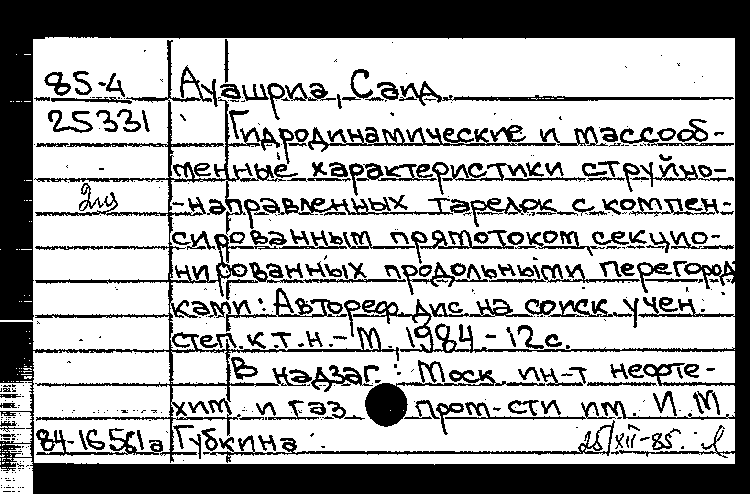 85-4 Ауашриа, Саид.
25331 Гидродинамические и массооб-
менные характеристики струйно-
-направленных тарелок с компен-
сированным прямотоком, секцио-
нированных продольными перегород
ками: Автореф. дис. на соиск. учен.
степ. к.т.н. - М., 1984. - 12 с.
В надзаг.: Моск. ин-т нефте-
хим. и газ. пром-сти им. И.М.
84-16561а Губкина. 25/XII-85.